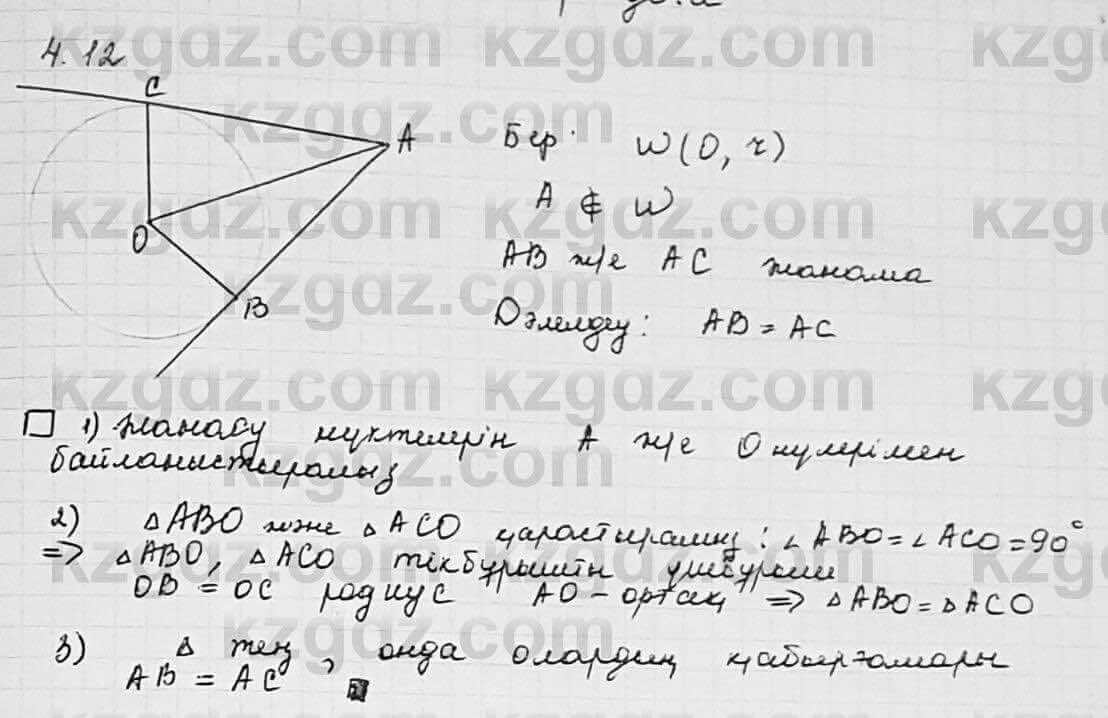 4.12
C
A
O
B
Бер: ω(O, r)
A ∉ ω
AB ж/е AC жанама
Дәлелдеу: AB = AC
□ 1) Жанасу нүктелерін A ж/е O нүлерімен
байланыстырамыз
2) △ABO және △ACO қарастырамыз: ∠ABO=∠ACO=90°
=> △ABO, △ACO тікбұрышты үшбұрыш
OB = OC радиус AO - ортақ => △ABO=△ACO
3) △ тең, онда олардың қабырғалары
AB = AC
kzgdz.com